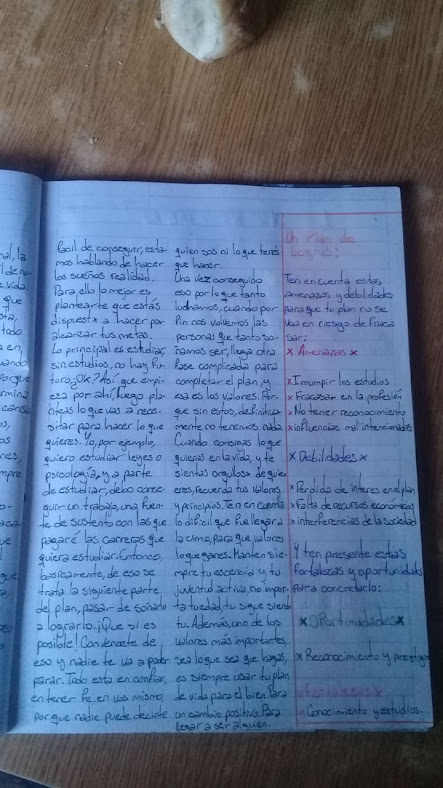 facil de conseguir, esta-
mos hablando de hacer
los sueños realidad.
Para ello lo mejor es
plantearte que estás
dispestx a hacer por
alcanzar tus metas.
Lo principal es estudiar,
sin estudios, no hay fu-
turo; Ok? Así que empi-
eza por ahí, luego pla-
nteas lo que vas a nece-
sitar para hacer lo que
quieres. Yo, por ejemplo,
quiero estudiar leyes o
psicología, y a parte
de estudiar, debo conse-
guir un trabajo, una fuen-
te de sustento con las que
pagaré las carreras que
quiera estudiar. Entonces,
basicamente, de eso se
trata la siguiente parte
del plan, pasar de soñarlo
a lograrlo. ¡Que si es
posible! Convencete de
eso y nadie te va a poder
parar. Todo esta en confiar,
en tener fe, en vos mismo,
porque nadie puede decirte
quien sos ni lo que tenés
que hacer.
Una vez conseguido
eso por lo que tanto
luchamos, cuando por
fin nos volvemos las
personas que tanto so-
ñamos ser, llega otra
fase complicada para
completar el plan, y
esa es los valores. Por-
que sin estos, definitiva-
mente no tenemos nada.
Cuando consigas lo que
quieras en la vida, y te
sientas orgullosx de quien
eres, recuerda tus valores
y principios. Ten en cuenta
lo dificil que fue llegar a
la cima, para que valores
lo que ganes. Manten sie-
mpre tu escencia y tu
juventud activa, no impor-
ta tu edad, tu sigue siendo
tu. Además, uno de los
valores más importantes,
sea lo que sea que hagas,
es siempre usar tu plan
de vida para el bien. Para
un cambio positivo. Para
llegar a ser alguien.
Un Plan de
Logros:
Ten en cuenta estas
amenazas y debilidades
para que tu plan no se
vea en riesgo de fraca
sar:
x Amenazas x
x Irrumpir los estudios
x Fracasar en la profesión
x No tener reconocimiento
x influencias mal intencionadas
x Debilidades x
x Perdida de interes en el plan
x Falta de recursos económicos
x interferencias de la sociedad
Y ten presente estas
fortalezas y oportunidades
para concretarlo:
x Oportunidades x
x Reconocimiento y prestigio
x Fortalezas x
x Conocimiento y estudios